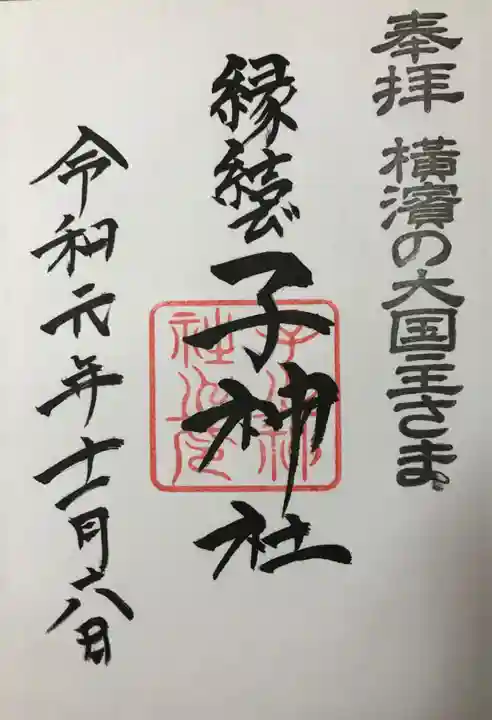 奉拝 横濱の大国主さま
縁結び
子神社
子神社之印
令和元年十一月六日